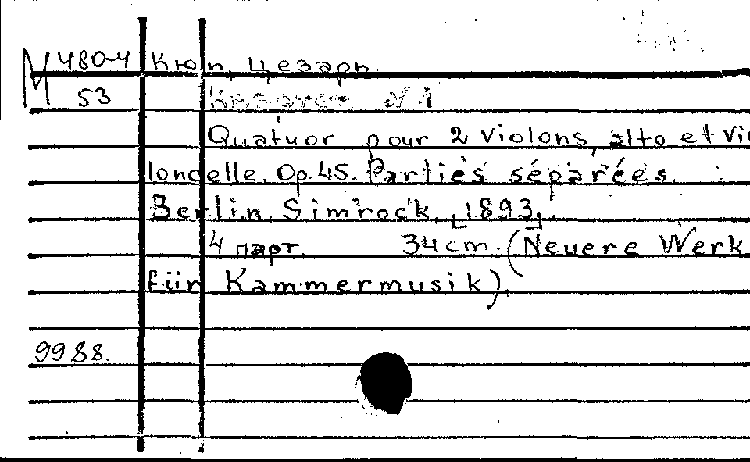 М 480-4 Кюи, Цезарь.
53 Квартет N 1
Quatuor pour 2 violons, alto et vio
loncelle. Op. 45. Parties séparées.
Berlin. Simrock, [1893].
4 парт. 34 cm. (Neuere Werk
für Kammermusik).
9988.